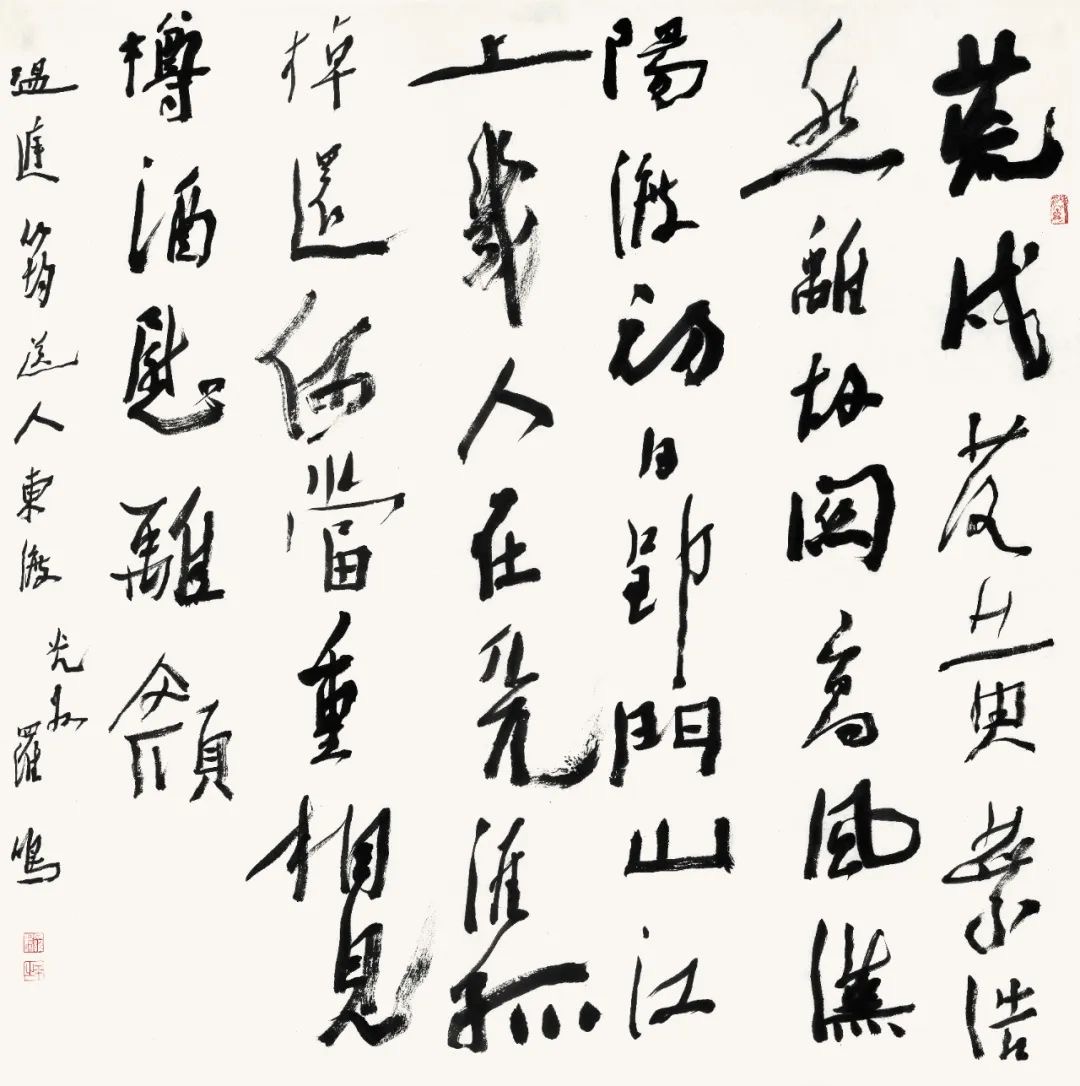 荒戍落黄葉浩
然離故關高風漢
陽渡初日郢門山江
上幾人在天涯孤
棹還何當重相見
樽酒慰離顔
温庭筠送人東渡 光州羅鳴